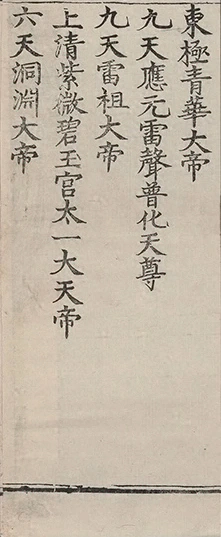 東極青華大帝
九天應元雷聲普化天尊
九天雷祖大帝
上清紫微碧玉宮太一大天帝
六天洞淵大帝